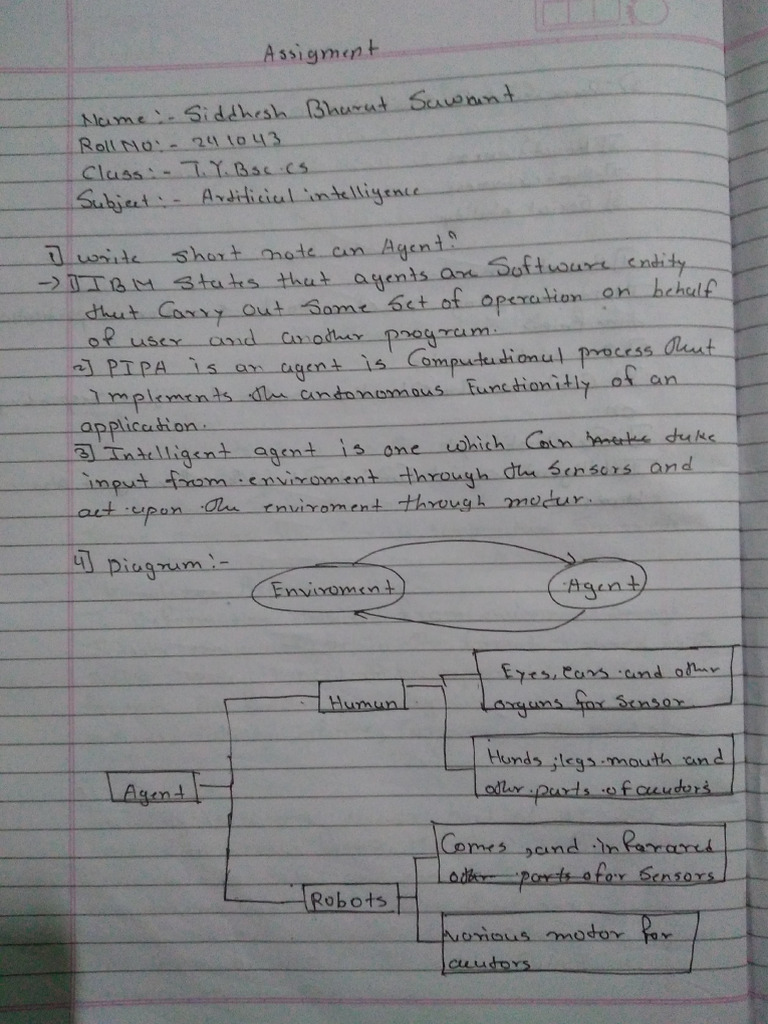 Assigment
Name :- Siddhesh Bharat Sawant
Roll No :- 241043
Class :- T.Y.Bsc.cs
Subject :- Artificial intelligence
1] write short note an Agent?
→ 1] IBM states that agents are Software entity
that Carry out Some Set of operation on behalf
of user and another program.
2] PIPA is an agent is Computational process that
Implements the autonomous Functionitly of an
application.
3] Intelligent agent is one which Can take
input from enviroment through the Sensors and
act upon the enviroment through motur.
4] Diagram :-
Enviroment
Agent
Eyes, ears and other
organs for Sensor
Human
Hands, legs mouth and
other parts of
Agent
Comes, and infarared
for Sensors
Robots
various motor for